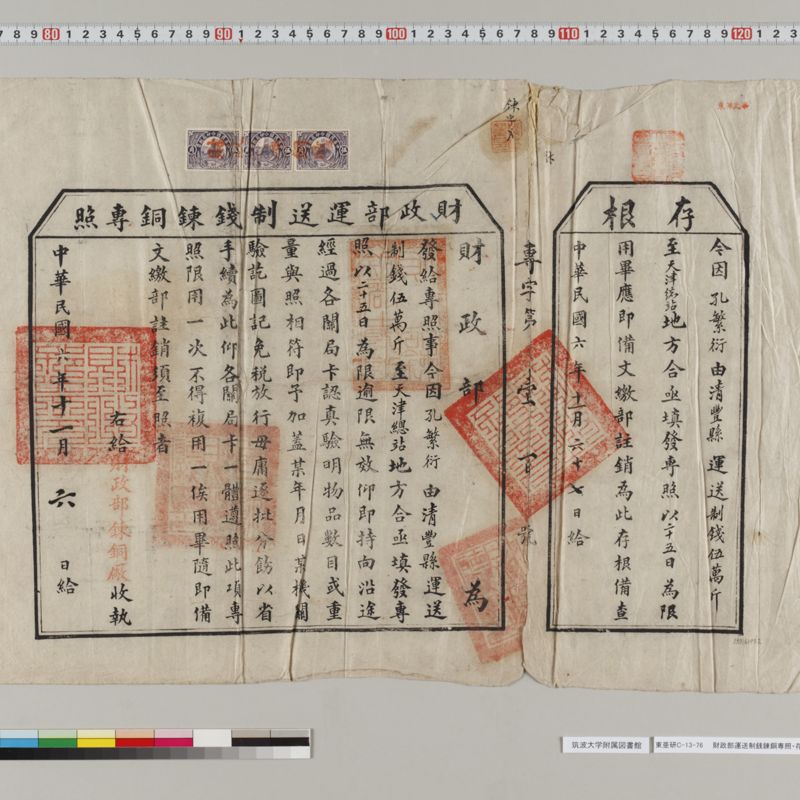 存根
今因 孔繁衍 由清豐縣 運送制錢伍萬斤
至天津總站地方合亟填發專照以二十五日為限
用畢應即備文繳部註銷為此存根備查
中華民國六年十一月六十七日給
專字第 壹百 號
財政部運送制錢鍊銅專照
財政部 為
發給專照事今因孔繁衍 由清豐縣運送
制錢伍萬斤至天津總站地方合亟填發專
照以二十五日為限逾限無效仰即持向沿途
經過各關局卡認真驗明物品數目或重
量與照相符即予加蓋某年月日某機關
驗訖圖記免稅放行毋庸逐批分飭以省
手續為此仰各關局卡一體遵照此項專
照限用一次不得複用一俟用畢隨即備
文繳部註銷須至照者
右給 財政部鍊銅廠 收執
中華民國六年十一月 六 日給
80 90 100 110 120
筑波大学附属図書館
東亜研C-13-76 財政部運送制銭錬銅専照・存